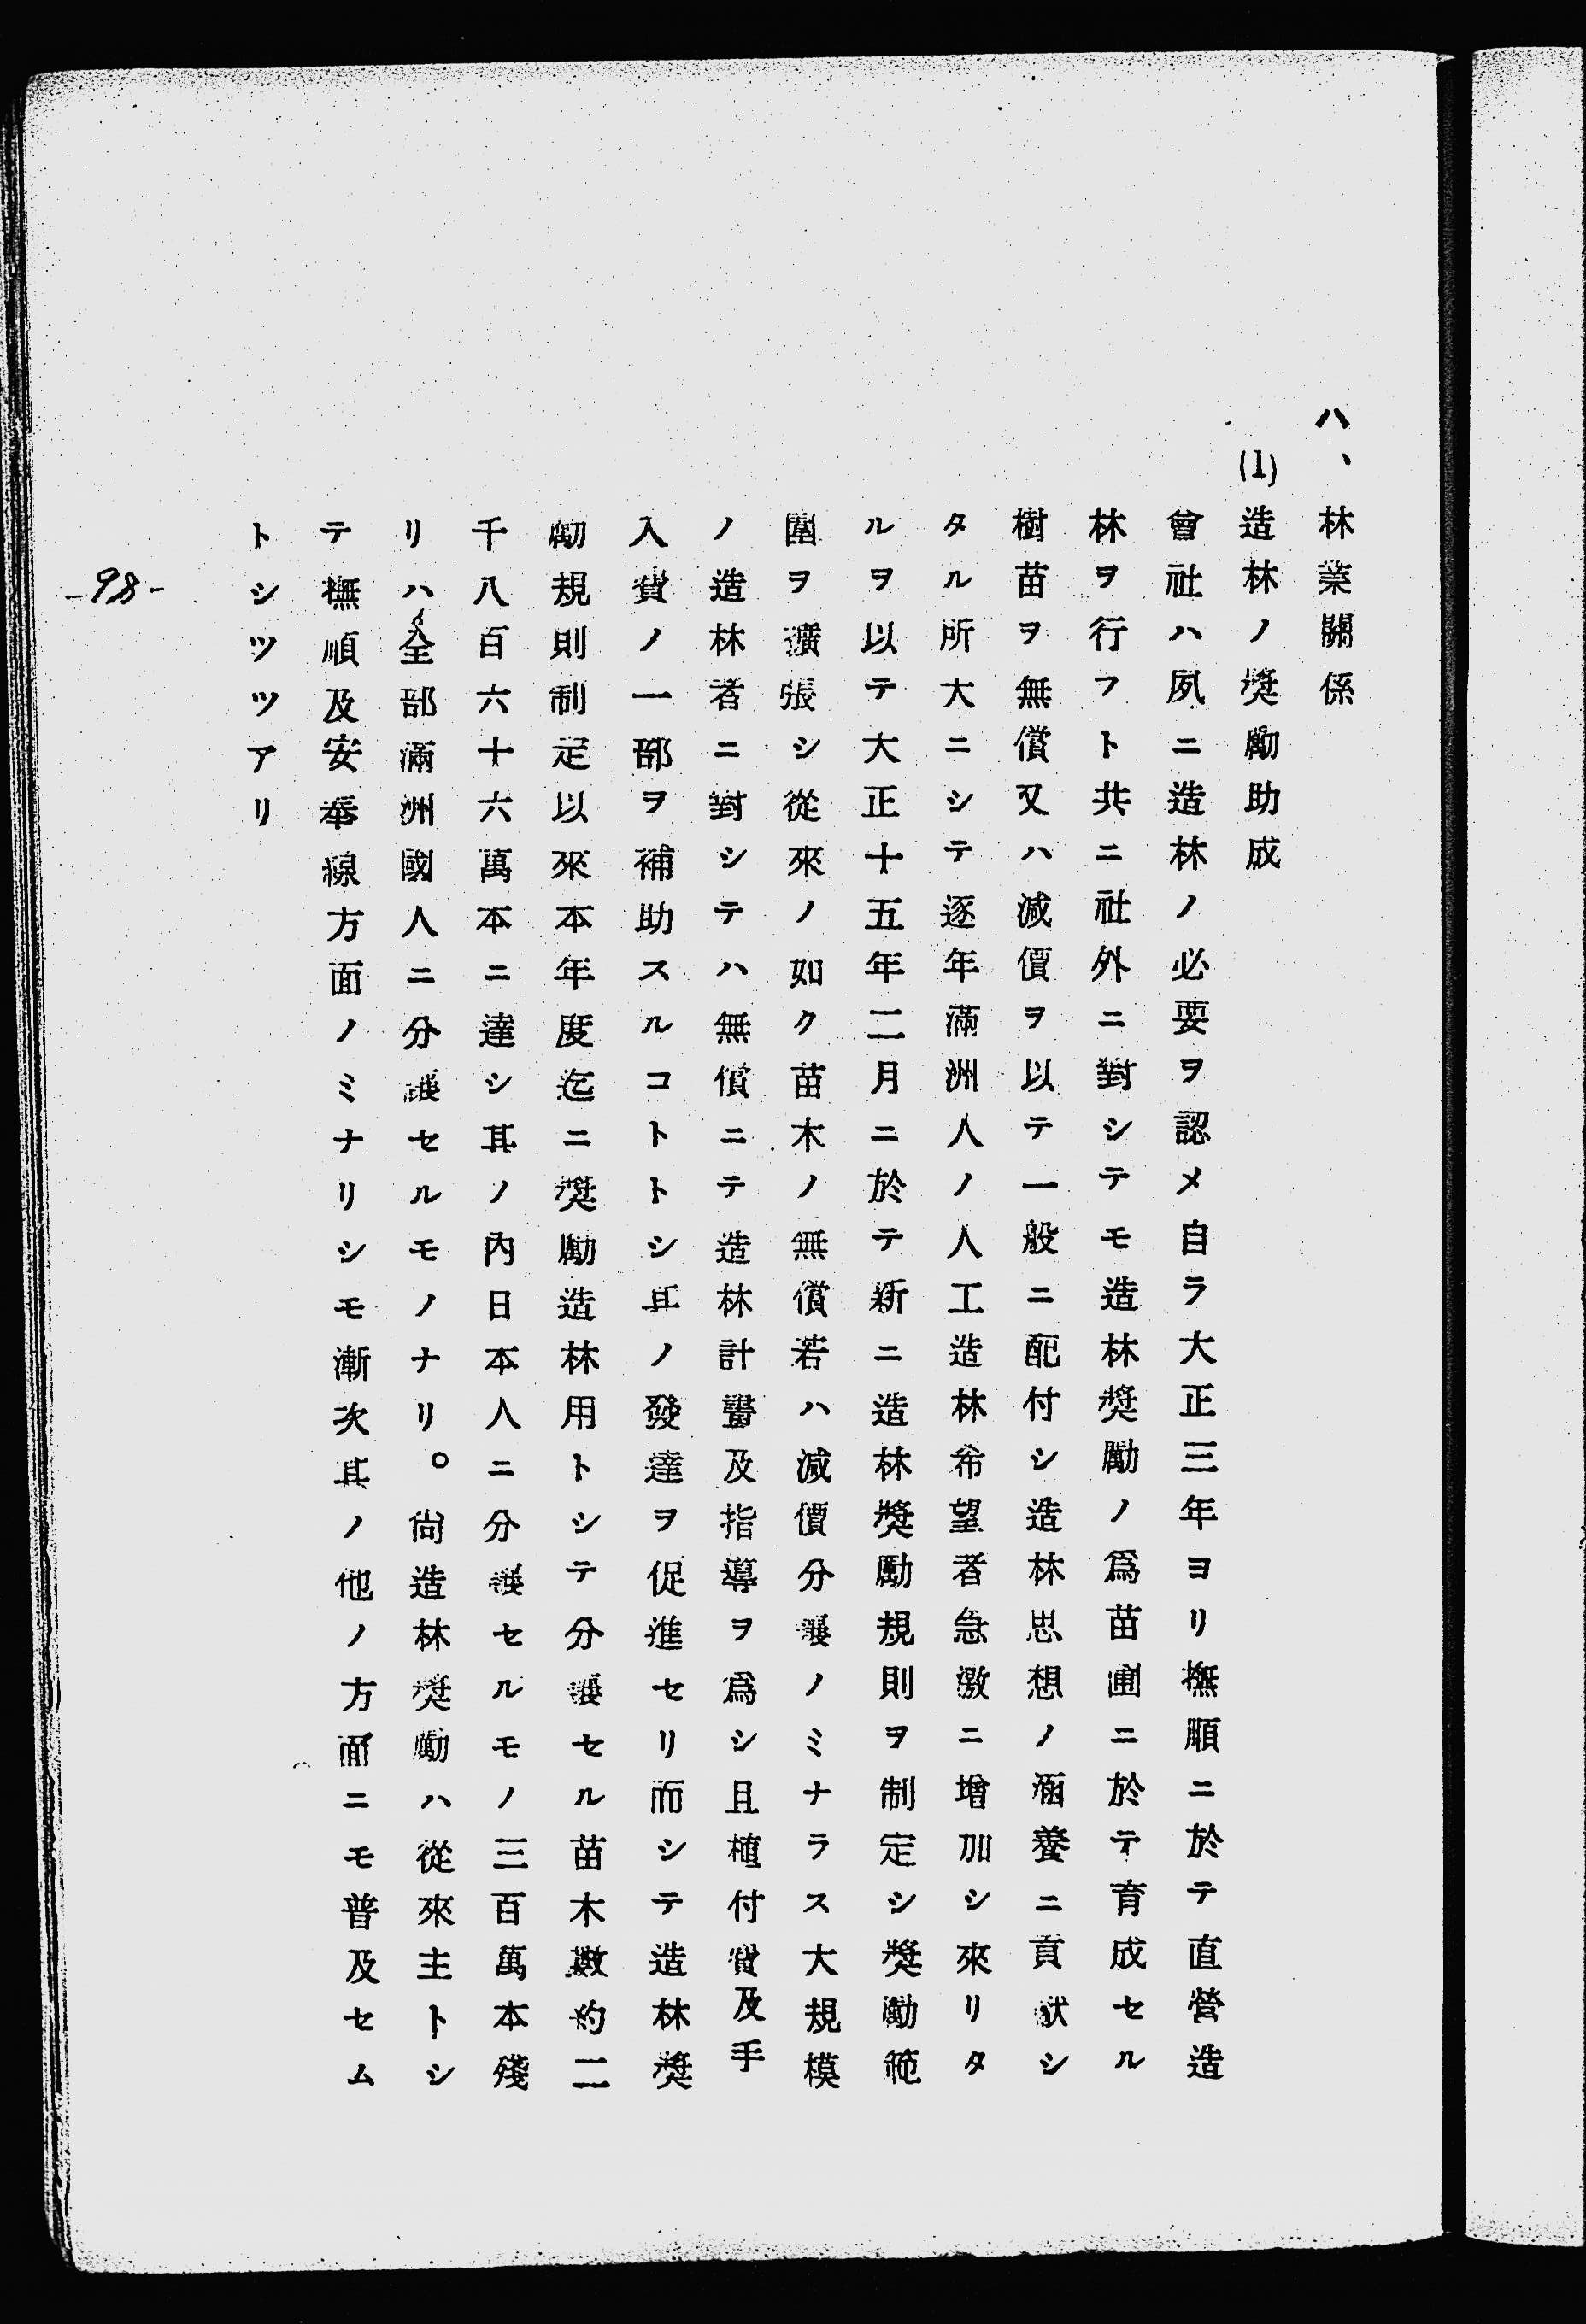 ハ、林業關係
(1)造林ノ奬勵助成
會社ハ夙ニ造林ノ必要ヲ認メ自ラ大正三年ヨリ撫順ニ於テ直營造
林ヲ行フト共ニ社外ニ對シテモ造林奬勵ノ爲苗圃ニ於テ育成セル
樹苗ヲ無償又ハ減價ヲ以テ一般ニ配付シ造林思想ノ涵養ニ貢献シ
タル所大ニシテ逐年滿洲人ノ人工造林希望者急激ニ增加シ來リタ
ルヲ以テ大正十五年二月ニ於テ新ニ造林奬勵規則ヲ制定シ奬勵範
圍ヲ擴張シ從來ノ如ク苗木ノ無償若ハ減價分讓ノミナラス大規模
ノ造林者ニ對シテハ無償ニテ造林計畫及指導ヲ爲シ且植付費及手
入費ノ一部ヲ補助スルコトトシ其ノ發達ヲ促進セリ而シテ造林奬
勵規則制定以來本年度迄ニ奬勵造林用トシテ分讓セル苗木數約二
千八百六十六萬本ニ達シ其ノ內日本人ニ分讓セルモノ三百萬本殘
リハ全部滿洲國人ニ分讓セルモノナリ。尙造林奬勵ハ從來主トシ
テ撫順及安奉線方面ノミナリシモ漸次其ノ他ノ方面ニモ普及セム
トシツツアリ
-98-